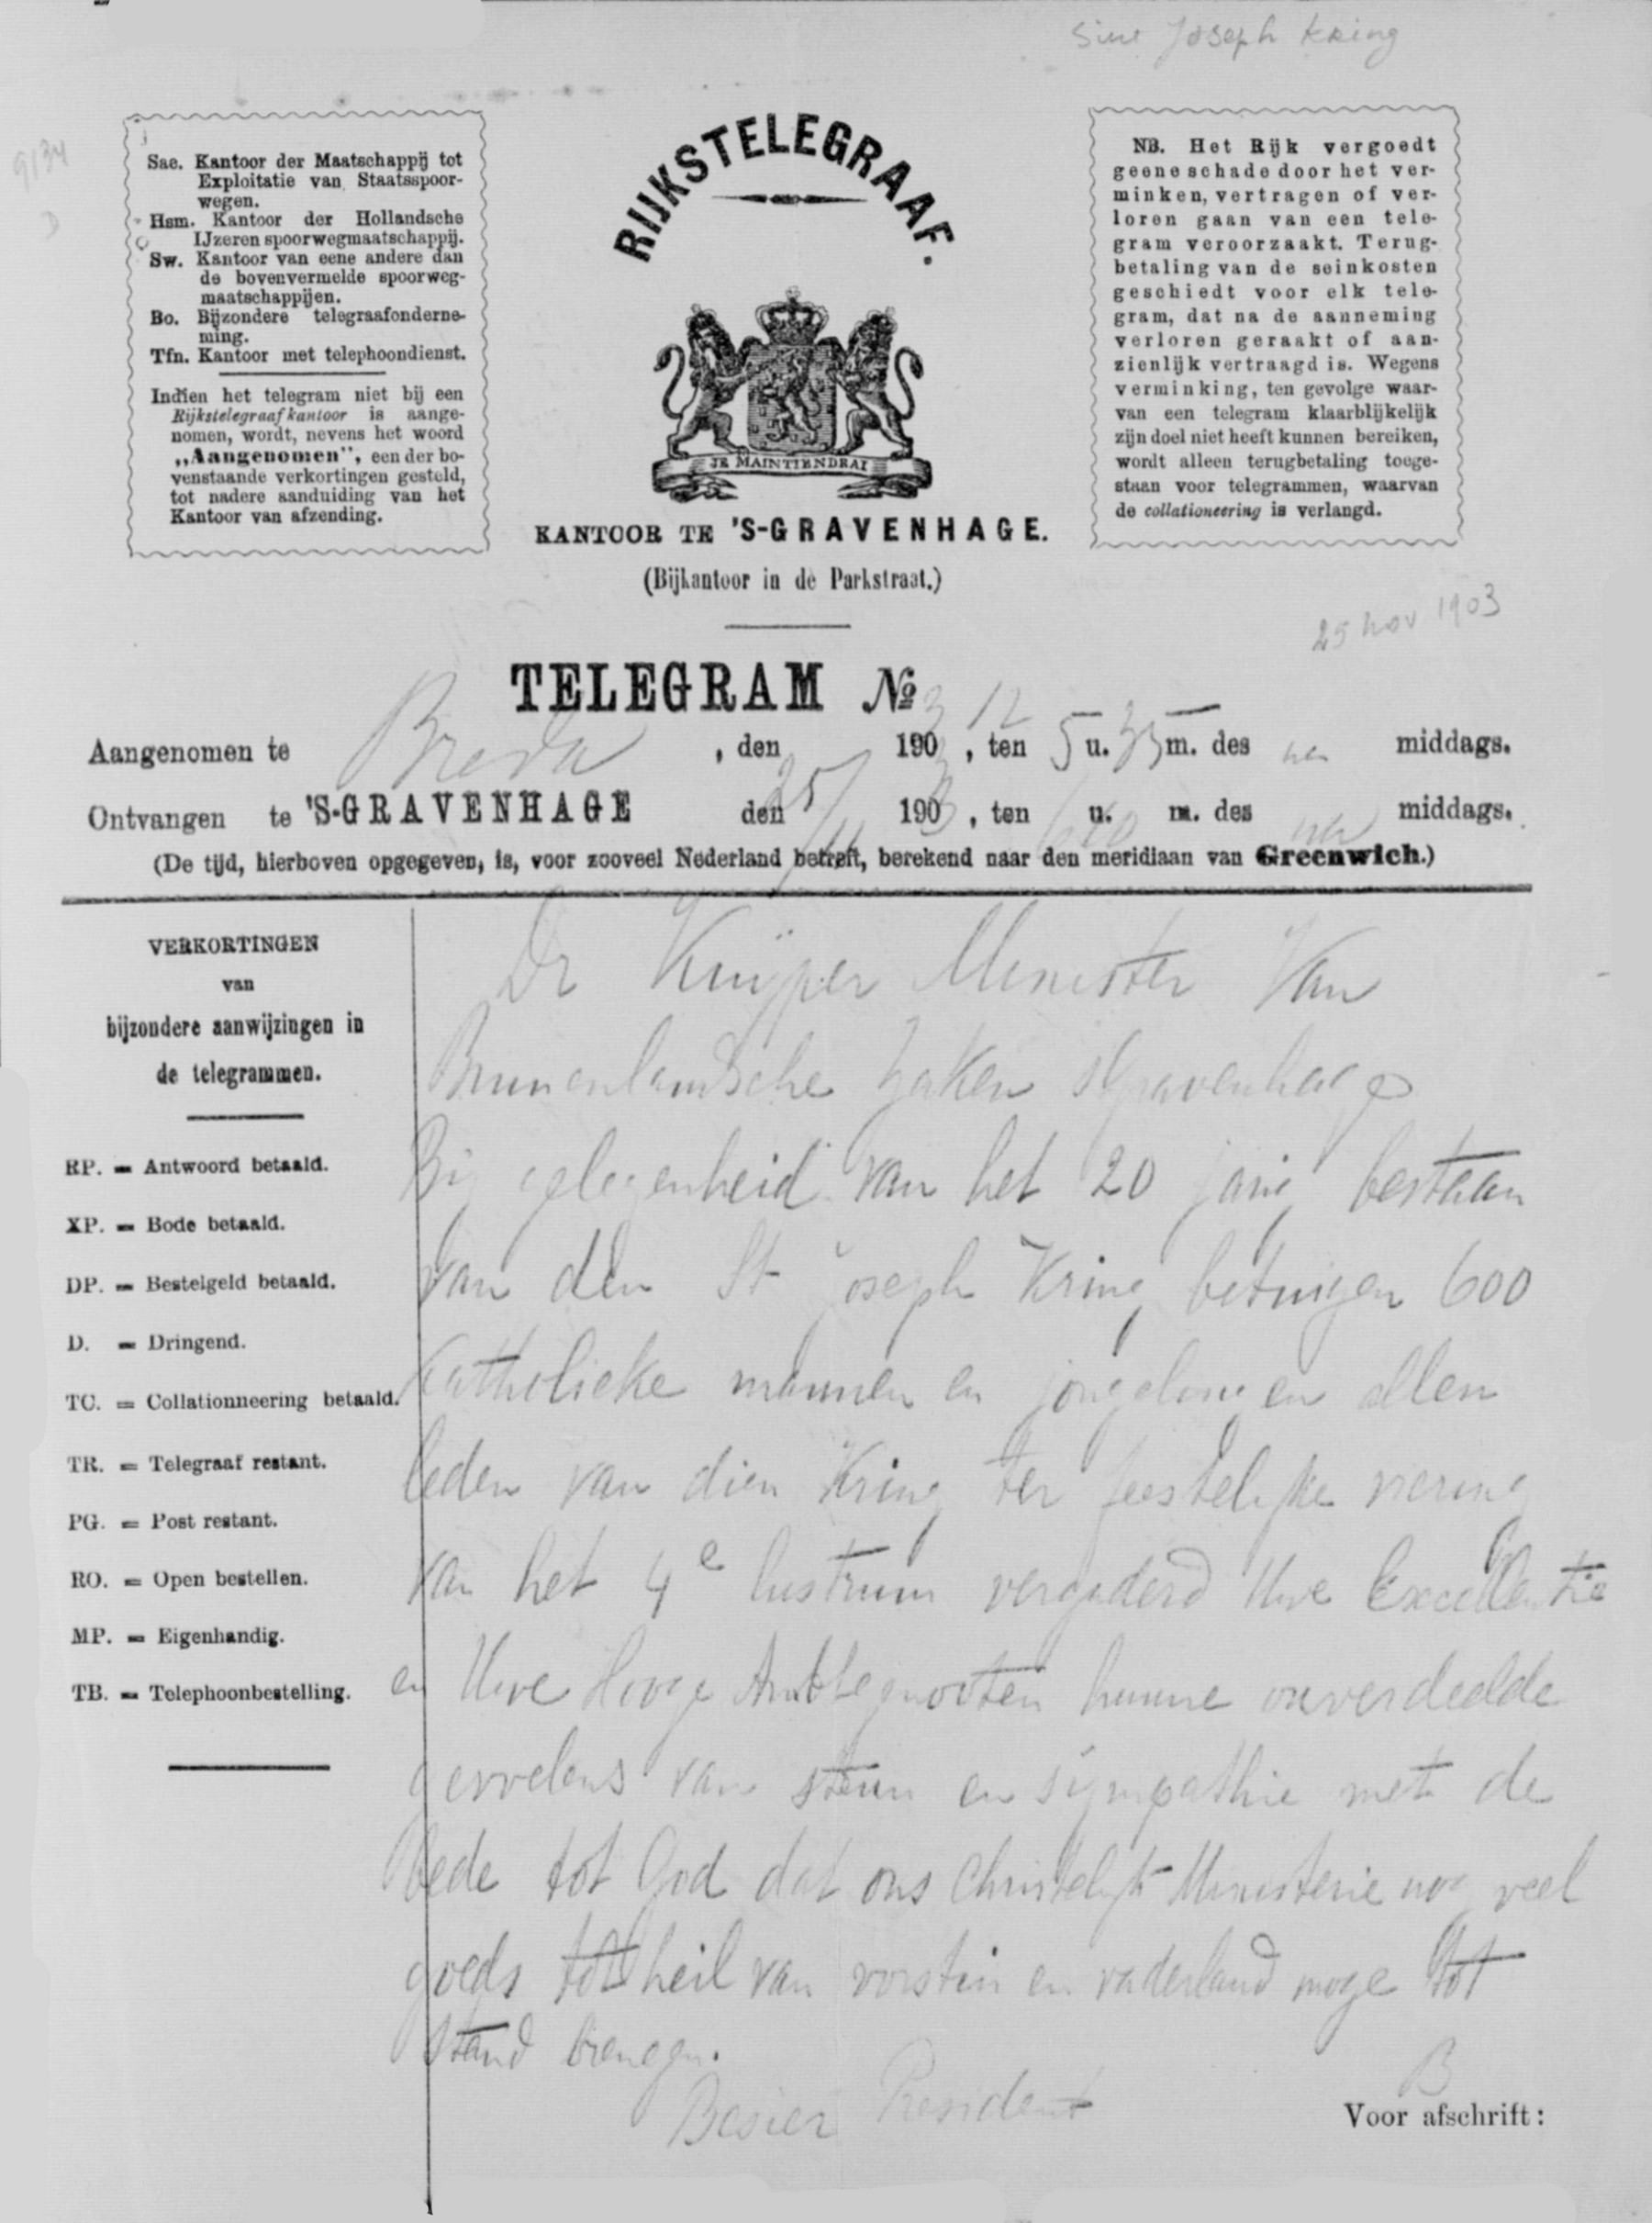 Sint Joseph Kring
9134
D
Sae. Kantoor der Maatschappij tot
Exploitatie van Staatsspoor-
wegen.
Hsm. Kantoor der Hollandsche
IJzeren spoorwegmaatschappij.
Sw. Kantoor van eene andere dan
de bovenvermelde spoorweg-
maatschappijen.
Bo. Bijzondere telegraafonderne-
ming.
Tfn. Kantoor met telephoondienst.
Indien het telegram niet bij een
Rijkstelegraafkantoor is aange-
nomen, wordt, nevens het woord
„Aangenomen", een der bo-
venstaande verkortingen gesteld,
tot nadere aanduiding van het
Kantoor van afzending.
RIJKSTELEGRAAF.
JE MAINTIENDRAI
KANTOOR TE 'S-GRAVENHAGE.
(Bijkantoor in de Parkstraat.)
NB. Het Rijk vergoedt
geene schade door het ver-
minken, vertragen of ver-
loren gaan van een tele-
gram veroorzaakt. Terug-
betaling van de seinkosten
geschiedt voor elk tele-
gram, dat na de aanneming
verloren geraakt of aan-
zienlijk vertraagd is. Wegens
verminking, ten gevolge waar-
van een telegram klaarblijkelijk
zijn doel niet heeft kunnen bereiken,
wordt alleen terugbetaling toege-
staan voor telegrammen, waarvan
de collationeering is verlangd.
25 nov 1903
TELEGRAM № 312
Aangenomen te Breda, den 1903, ten 5 u. 35 m. des na middags.
Ontvangen te 'S-GRAVENHAGE den 25/11 1903, ten u. m. des na middags.
(De tijd, hierboven opgegeven, is, voor zooveel Nederland betreft, berekend naar den meridiaan van Greenwich.)
VERKORTINGEN
van
bijzondere aanwijzingen in
de telegrammen.
RP. = Antwoord betaald.
XP. = Bode betaald.
DP. = Bestelgeld betaald.
D. = Dringend.
TC. = Collationneering betaald.
TR. = Telegraaf restant.
PG. = Post restant.
RO. = Open bestellen.
MP. = Eigenhandig.
TB. = Telephoonbestelling.
Dr Kuijper Minister Van
Binnenlandsche Zaken sGravenhage
Bij gelegenheid van het 20 jarig bestaan
van den St Joseph Kring betuigen 600
Katholieke mannen en jongelingen allen
leden van dien Kring ter feestelijke viering
van het 4e lustrum vergaderd Uwe Excellentie
en Uwe Hooge Ambtegnooten hunne onverdeelde
gevoelens van steun en sympathie met de
bede tot God dat ons Christelijk Ministerie nog veel
goeds tot heil van vorstin en vaderland moge tot
stand brengen.
Besier President
B
Voor afschrift: